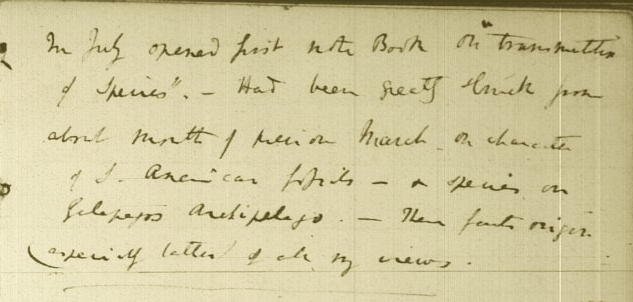 In July opened first note Book on "transmutation
of Species". — Had been greatly struck from
about month of previous March — on character
of S. American fossils — & species on
Galapagos Archipelago. — These facts origin
(especially latter) of all my views.